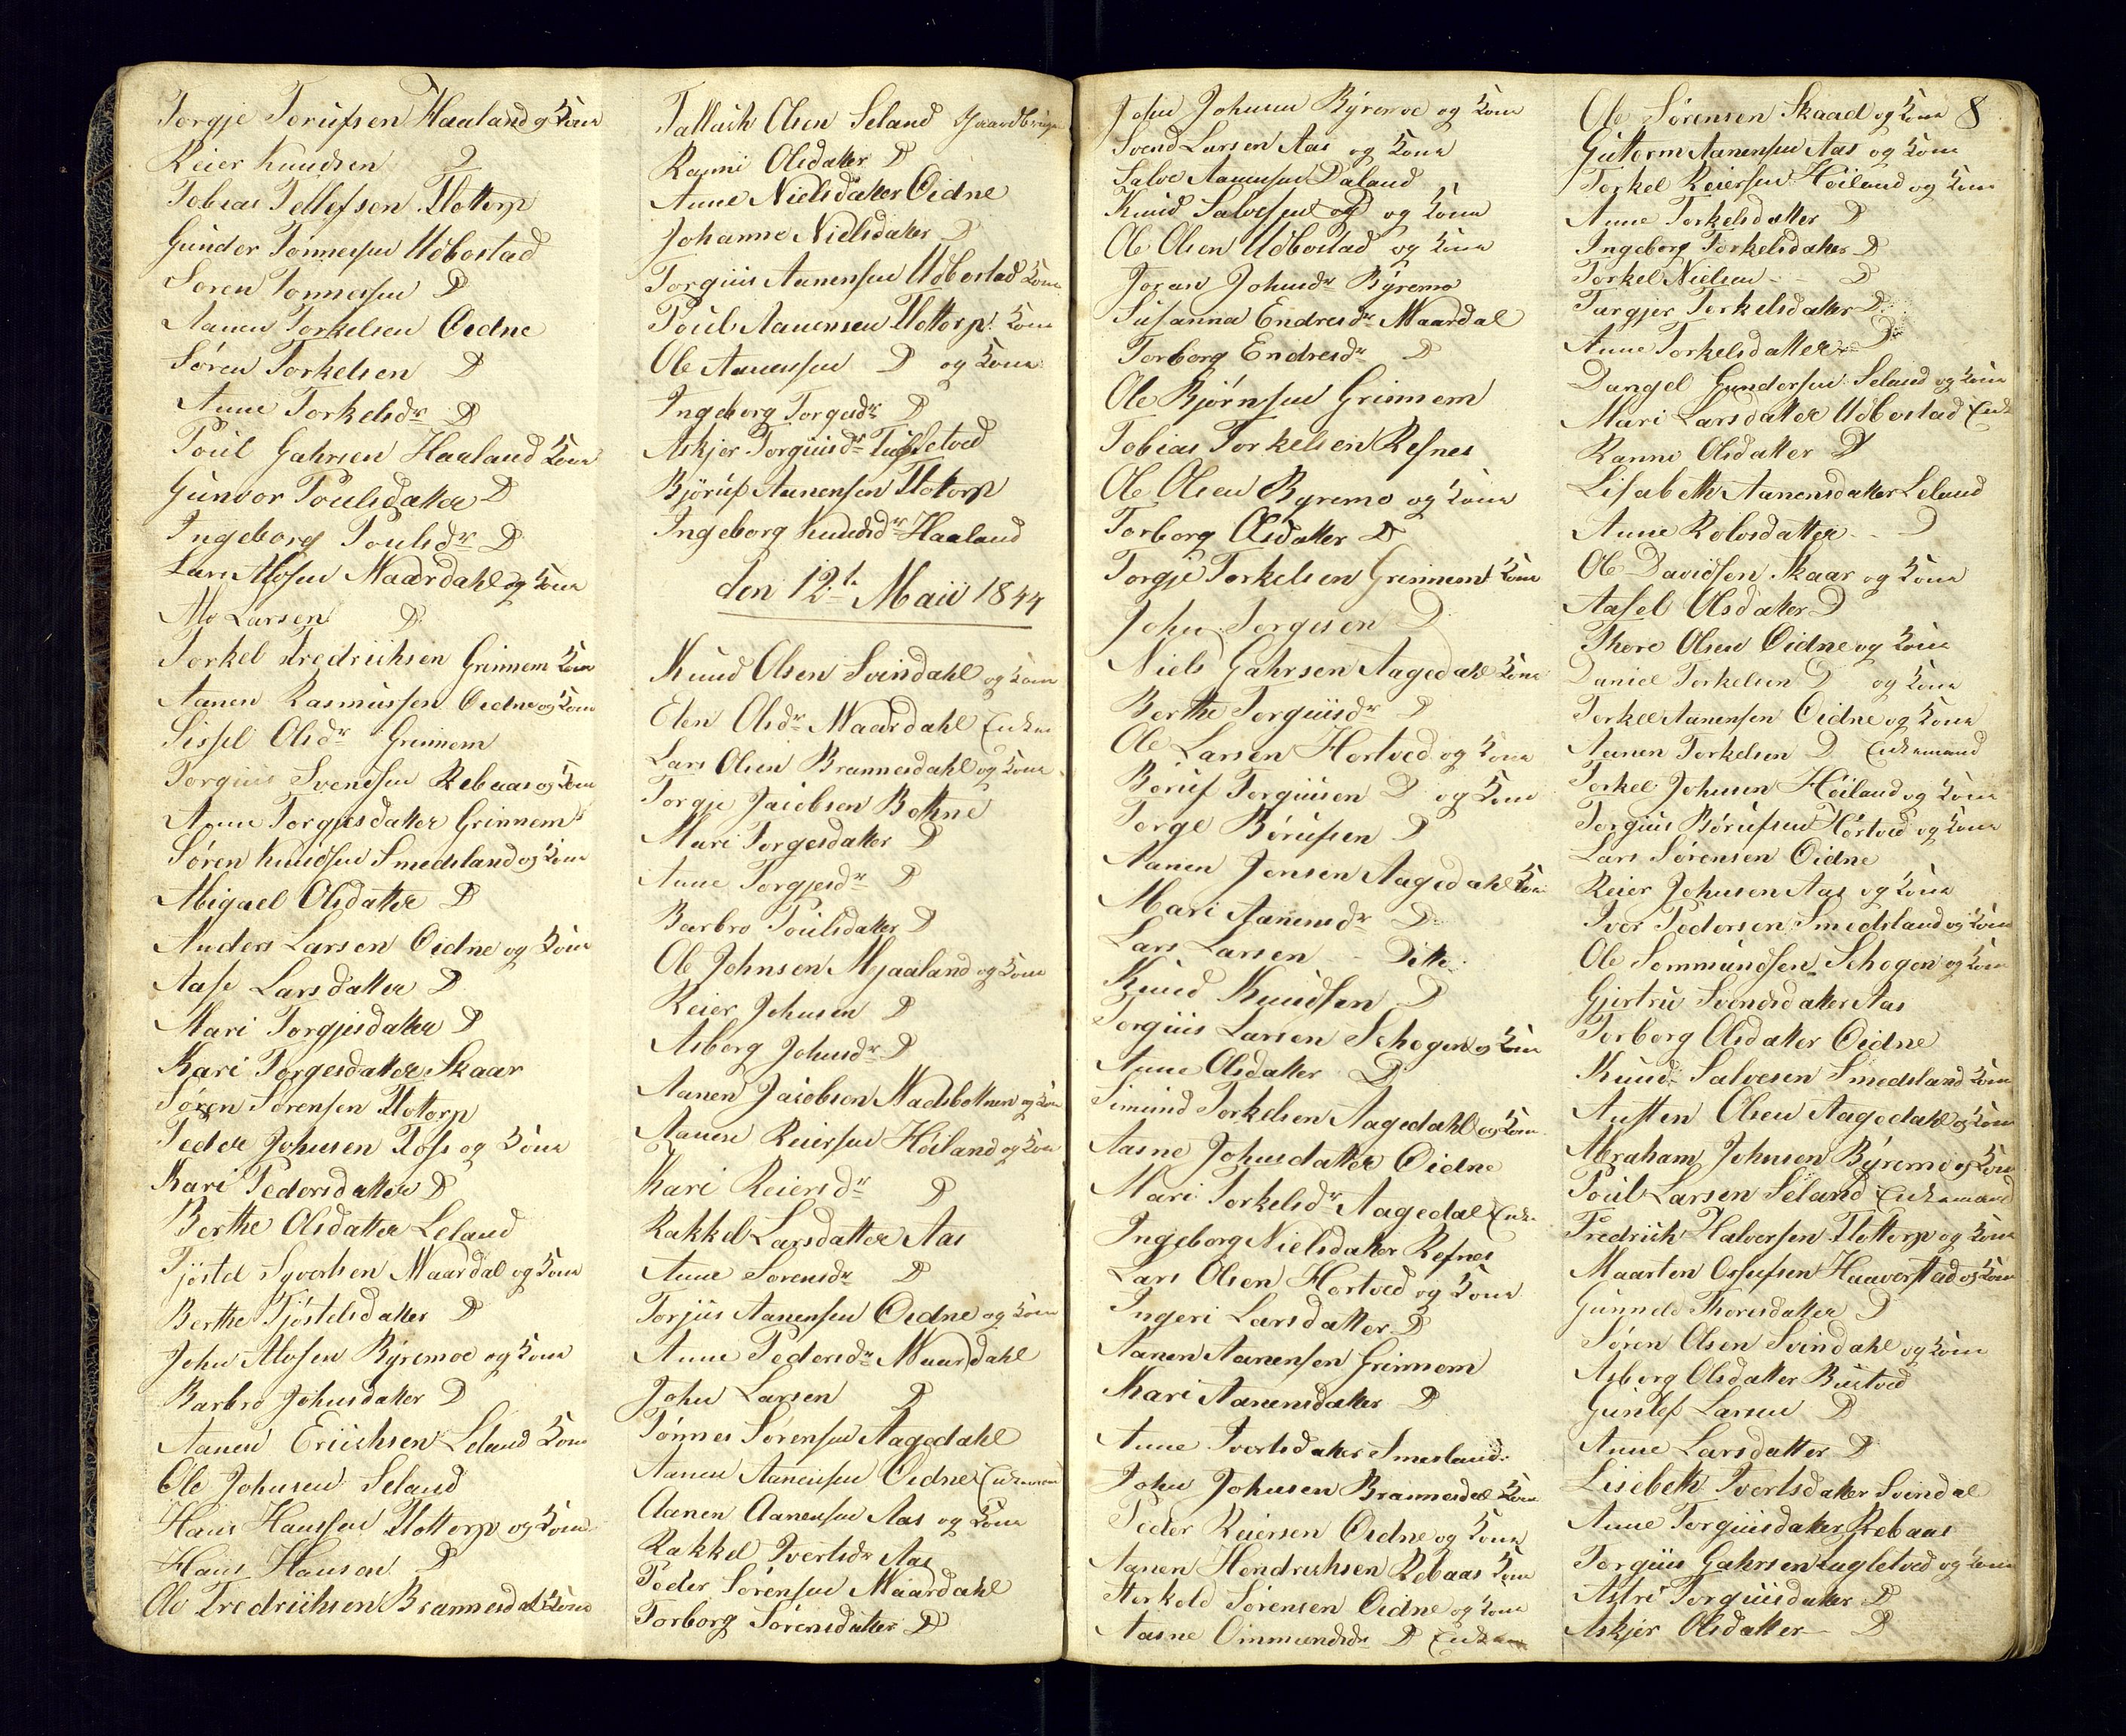 Torgje Torufsen Haaland og Kone
Reier Knudsen D
Tobias Tellefsen Flottorp
Gunder Tonnessen Udbostad
Soren Tonnessen D
Aanen Torkelsen Oidne
Søren Torkelsen D
Anne Torkelsdr D
Poul Gahrsen Haaland Kone
Gunvor Poulsdatter D
Ingeborg Poulsdr D
Lars Alofsen Maardahl og Kone
Alo Larsen D
Torkel Fredrichsen Grinnem Kone
Aanen Rasmussen Oidne og Kone
Sissel Olsdr Grinnem
Torgius Svendsen Rebaas og Kone
Anne Torgiusdatter Grinnem
Søren Knudsen Smedsland og Kone
Abigael Olsdatter D
Anders Larsen Oidne og Kone
Aase Larsdatter D
Mari Torgjesdatter D
Kari Torgesdatter Skaar
Søren Sørensen Flottorp
Peder Johnsen Foss og Kone
Kari Pedersdatter D
Berthe Olsdatter Leland
Tjøstel Syvertsen Maardal og Kone
Berthe Tjøstelsdatter D
John Alofsen Byremoe og Kone
Barbro Johnsdatter D
Aanen Erichsen Leland Kone
Ole Johnsen Seland
Hans Hanssen Flottorp og Kone
Hans Hansen D
Ole Fredrichsen Brannesdal Kone
Tallach Olsen Seland
Ranni Olsdatter D
Anne Nielsdatter Oidne
Johanne Nielsdatter D
Torgius Aanensen Udbostad Kone
Poul Aanensen Flottorp Kone
Ole Aanensen D og Kone
Ingeborg Torgesdr D
Askjer Torgiusdr Tugletved
Bjøruf Aanensen Flottorp
Ingeborg Knudsdr Haaland
den 12t Maii 1844
Knud Olsen Svindahl og Kone
Elen Olsdr Maardahl Enke
Lars Olsen Brannesdahl og Kone
Torgje Jacobsen Botne
Mari Torgesdatter D
Anne Torgjesdr D
Barbro Poulsdatter D
Ole Johnsen Mjaaland og Kone
Reier Johnsen D
Asborg Johnsdr D
Aanen Jacobsen Madsbotnen og Kone
Aanen Reiersen Høiland og Kone
Kari Reiersdr D
Rakkel Larsdatter Aas
Anne Sorensdr D
Torjus Aanensen Oidne og Kone
Anne Pedersdr Maardahl
John Larsen D
Tønnes Sørensen Aagedahl
Aanen Aanensen Oidne Enkemand
Aanen Aanensen Aas og Kone
Rakkel Ivertsdr Aas
Peder Sørensen Maardahl
Torborg Sørensdatter D
John Johnsen Byremoe og Kone
Svend Larsen Aas og Kone
Salve Aanensen Daland
Knud Salvesen D og Kone
Ole Olsen Udbostad og Kone
Joran Johnsdr Byremo
Susanna Endresdr Maardal
Torborg Endresdr D
Ole Bjørnsen Grinnem
Tobias Torkelsen Refnes
Ole Olsen Byremo og Kone
Torborg Olsdatter D
Torgje Torkelsen Grinnem Kone
John Torgesen D
Niels Gahrsen Aagedahl Kone
Berthe Torgiusdr D
Ole Larsen Hortved og Kone
Boruf Torgiusen D og Kone
Torge Børufsen D
Aanen Jensen Aagedahl Kone
Mari Aanensdr D
Lars Larsen Ditto
Knud Knudsen D
Torgius Larsen Schogen og Kone
Anne Olsdatter D
Simund Torkelsen Aagedahl og Kone
Aasne Johnsdatter Oidne
Mari Torkelsdr Aagedal Enke
Ingeborg Nielsdatter Refnes
Lars Olsen Hortved og Kone
Ingeri Larsdatter D
Aanen Aanensen Grinnem
Mari Aanensdatter D
Anne Ivertsdatter Smesland
John Johnsen Brannesdal Kone
Peder Reiersen Oidne og Kone
Aanen Hendrichsen Rebaas Kone
Sørensen Oidne og Kone
Aasne Ommundsdr D Enke
Ole Sørensen Skaael og Kone 8
Guttorm Aanensen Aas og Kone
Torkel Reiersen Høiland og Kone
Anne Torkelsdatter D
Ingeborg Torkelsdatter D
Torkel Nielsen D
Targjer Torkelsdatter D
Anne Torkelsdatter D
Dangel Gundersen Seland og Kone
Mari Larsdatter Udbostad Enke
Ranne Olsdatter D
Lisabeth Aanensdatter Leland
Anne Rolvsdatter D
Ole Davidsen Skaar og Kone
Aasel Olsdatter D
Thore Olsen Oidne og Kone
Daniel Torkelsen D og Kone
Torkel Aanensen Oidne og Kone
Aanen Torkelsen D Enkemand
Torkel Johnsen Høiland og Kone
Torgius Børufsen Hortved og Kone
Lars Sørensen Oidne
Reier Johnsen Aas og Kone
Iver Pedersen Smedsland og Kone
Ole Sommundsen Schogen og Kone
Gjertru Svendsdatter Aas
Torborg Olsdatter Oidne
Knud Salvesen Smedsland Kone
Austen Olsen Aagedahl og Kone
Abraham Johnsen Byremo og Kone
Poul Larsen Seland Enkemand
Fredrich Halversen Flottorp og Kone
Maarten Osufsen Haaverstad og Kone
Gunneld Thoresdatter D
Søren Olsen Svindahl og Kone
Asborg Olsdatter Bustved
Gunlef Larsen D
Anne Larsdatter D
Lisebeth Ivertsdatter Svindal
Anne Torgiusdatter Rebaas
Torgius Gahrsen Tugletved og Kone
Astri Torgiusdatter D
Askjer Olsdatter D